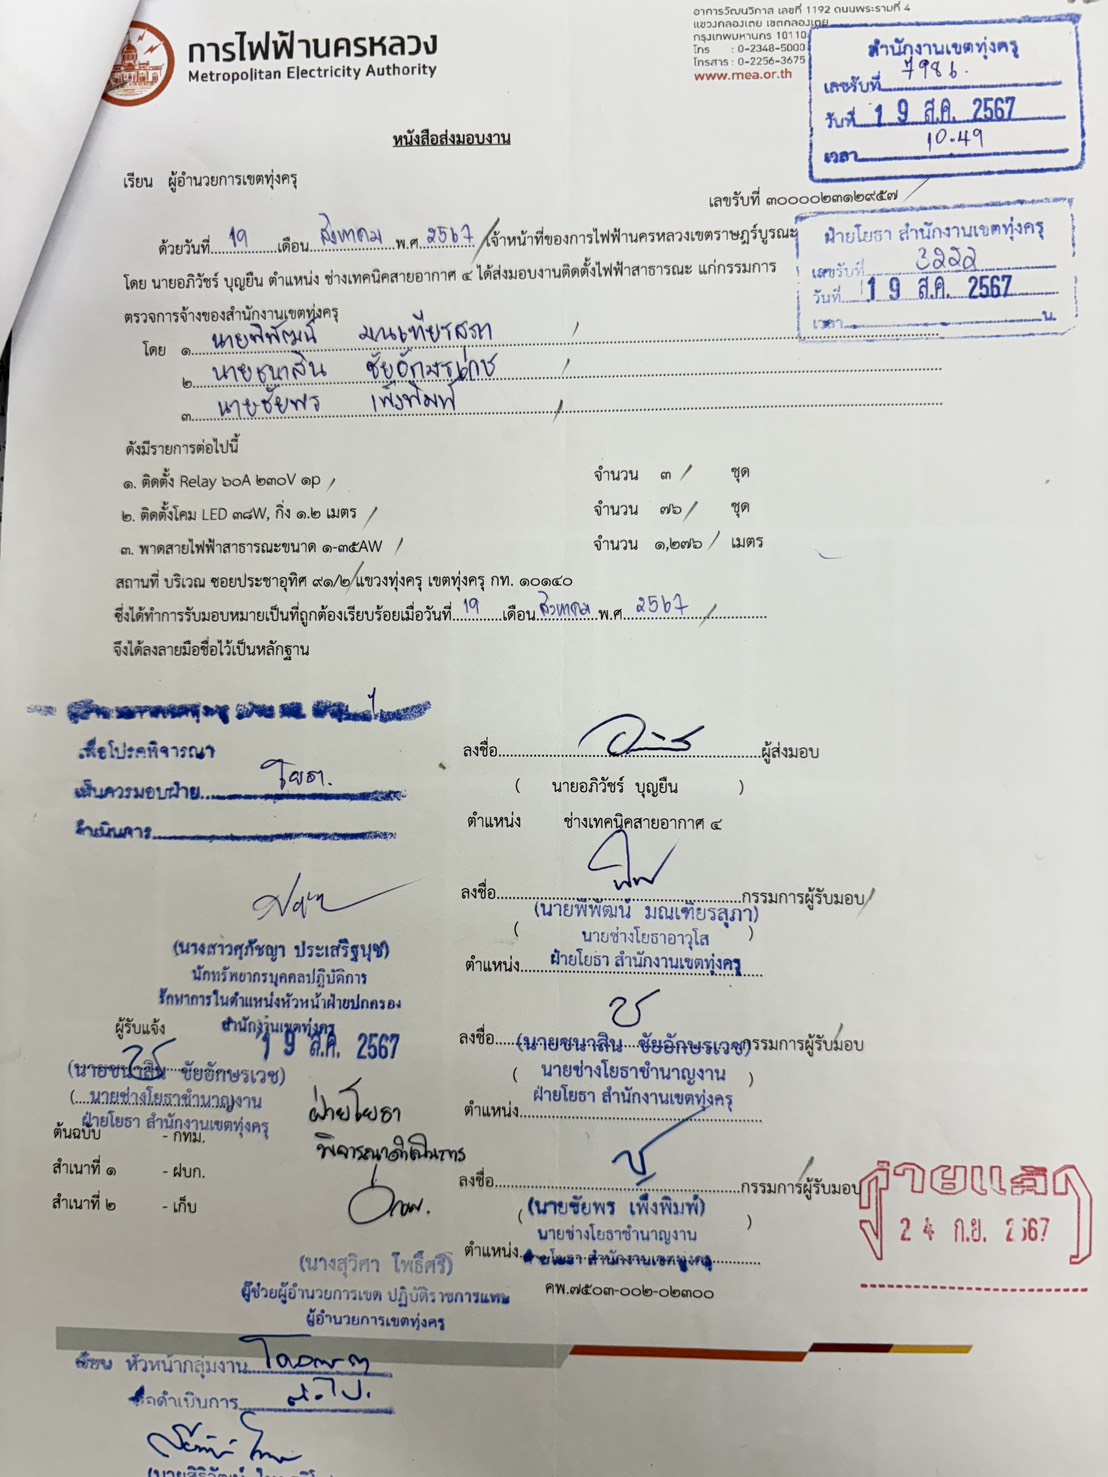 การไฟฟ้านครหลวง
Metropolitan Electricity Authority
อาคารวัฒนวิภาส เลขที่ 1192 ถนนพระรามที่ 4
แขวงคลองเตย เขตคลองเตย
กรุงเทพมหานคร 10110
โทร : 0-2348-5000
โทรสาร : 0-2256-3675
www.mea.or.th
สำนักงานเขตทุ่งครุ
เลขรับที่ 7986
วันที่ 19 ส.ค. 2567
เวลา 10.49
หนังสือส่งมอบงาน
เรียน ผู้อำนวยการเขตทุ่งครุ
เลขรับที่ ๓๐๐๐๐๒๓๑๒๙๕๗
ฝ่ายโยธา สำนักงานเขตทุ่งครุ
เลขรับที่ 3222
วันที่ 19 ส.ค. 2567
เวลา น.
ด้วยวันที่ 19 เดือน สิงหาคม พ.ศ. 2567 เจ้าหน้าที่ของการไฟฟ้านครหลวงเขตราษฎร์บูรณะ
โดย นายอภิวัชร์ บุญยืน ตำแหน่ง ช่างเทคนิคสายอากาศ ๔ ได้ส่งมอบงานติดตั้งไฟฟ้าสาธารณะ แก่กรรมการ
ตรวจการจ้างของสำนักงานเขตทุ่งครุ
โดย ๑. นายพิพัฒน์ มณเฑียรสุภา
๒. นายชนาสิน ชัยอักษรเวช
๓. นายชัยพร เพ็งพิมพ์
ดังมีรายการต่อไปนี้
๑. ติดตั้ง Relay ๖๐A ๒๓๐V ๑p จำนวน ๓ ชุด
๒. ติดตั้งโคม LED ๓๘W, กิ่ง ๑.๒ เมตร จำนวน ๗๖ ชุด
๓. พาดสายไฟฟ้าสาธารณะขนาด ๑-๓๕AW จำนวน ๑,๒๗๖ เมตร
สถานที่ บริเวณ ซอยประชาอุทิศ ๙๑/๒ แขวงทุ่งครุ เขตทุ่งครุ กท. ๑๐๑๔๐
ซึ่งได้ทำการรับมอบหมายเป็นที่ถูกต้องเรียบร้อยเมื่อวันที่ 19 เดือน สิงหาคม พ.ศ. 2567
จึงได้ลงลายมือชื่อไว้เป็นหลักฐาน
เพื่อโปรดพิจารณา
เห็นควรมอบฝ่าย โยธา
ดำเนินการ
ลงชื่อ ผู้ส่งมอบ
( นายอภิวัชร์ บุญยืน )
ตำแหน่ง ช่างเทคนิคสายอากาศ ๔
ลงชื่อ กรรมการผู้รับมอบ
(นายพิพัฒน์ มณเฑียรสุภา)
นายช่างโยธาอาวุโส
ตำแหน่ง ฝ่ายโยธา สำนักงานเขตทุ่งครุ
(นางสาวศุภัชญา ประเสริฐนุช)
นักทรัพยากรบุคคลปฏิบัติการ
รักษาการในตำแหน่งหัวหน้าฝ่ายปกครอง
สำนักงานเขตทุ่งครุ
19 ส.ค. 2567
ผู้รับแจ้ง
(นายชนาสิน ชัยอักษรเวช)
นายช่างโยธาชำนาญงาน
ฝ่ายโยธา สำนักงานเขตทุ่งครุ
ลงชื่อ กรรมการผู้รับมอบ
(นายชนาสิน ชัยอักษรเวช)
นายช่างโยธาชำนาญงาน
ฝ่ายโยธา สำนักงานเขตทุ่งครุ
ตำแหน่ง
ต้นฉบับ - กทม.
สำเนาที่ ๑ - ฝบก.
สำเนาที่ ๒ - เก็บ
ฝ่ายโยธา
พิจารณาดำเนินการ
ลงชื่อ กรรมการผู้รับมอบ
(นายชัยพร เพ็งพิมพ์)
นายช่างโยธาชำนาญงาน
ตำแหน่ง ฝ่ายโยธา สำนักงานเขตทุ่งครุ
คพ.๗๕๐๓-๐๐๒-๐๒๓๐๐
จ่ายแล้ว
24 ก.ย. 2567
(นางสุวิศา โพธิ์ศรี)
ผู้ช่วยผู้อำนวยการเขต ปฏิบัติราชการแทน
ผู้อำนวยการเขตทุ่งครุ
เรียน หัวหน้ากลุ่มงาน
ดำเนินการ